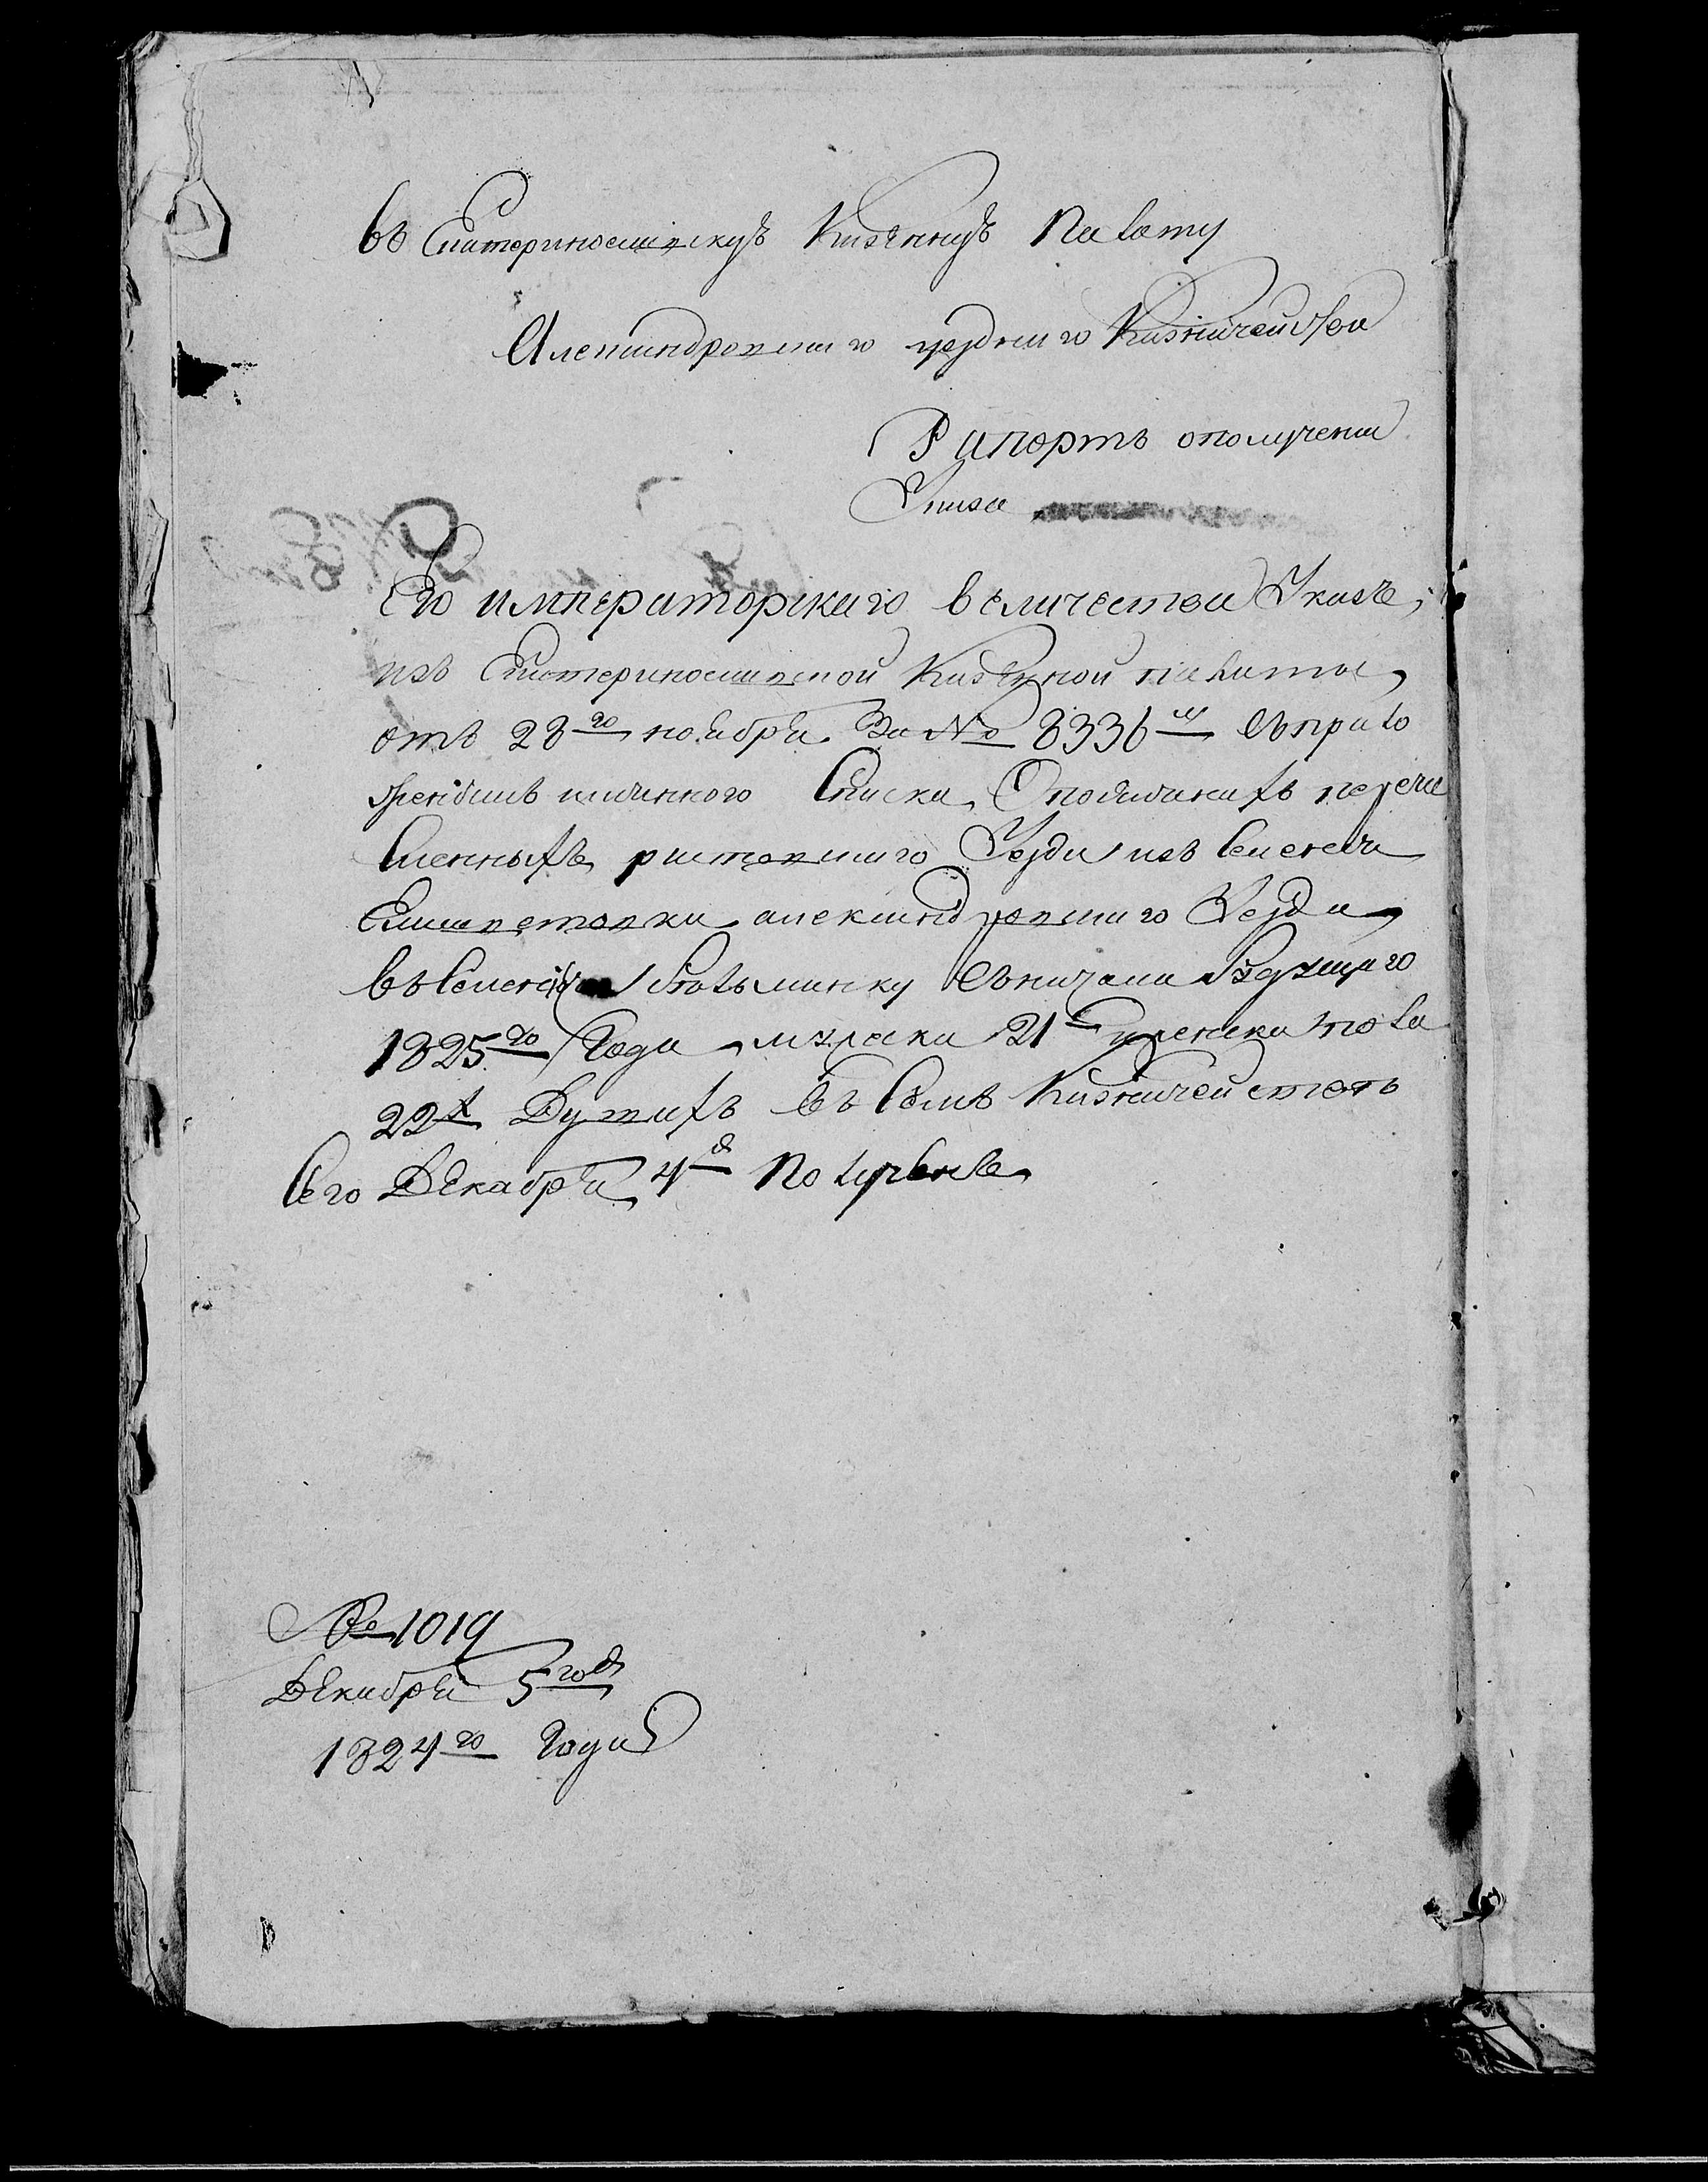 въ Екатериносла†скую Казенную Палату
Александровскаго уезднаго Казначейства
Рапортъ ополучении
Указа
Его императорскаго величества Указъ,
изъ Екатеринославской Казенной палаты
отъ 28го ноября за № 8336м съприло
жениемъ имяннаго Списка, Оподданныхъ перечи
сленныхъ ростовскаго Уезда изъ селения
александровскаго Уезда
въселение съначала Будущаго
1825го Года мужеска 21 и женска пола
22х Душахъ въ семъ Казначействе
сего Декабря 4 д Полученъ
№ 1019
Декабря 5го д
1824го Года